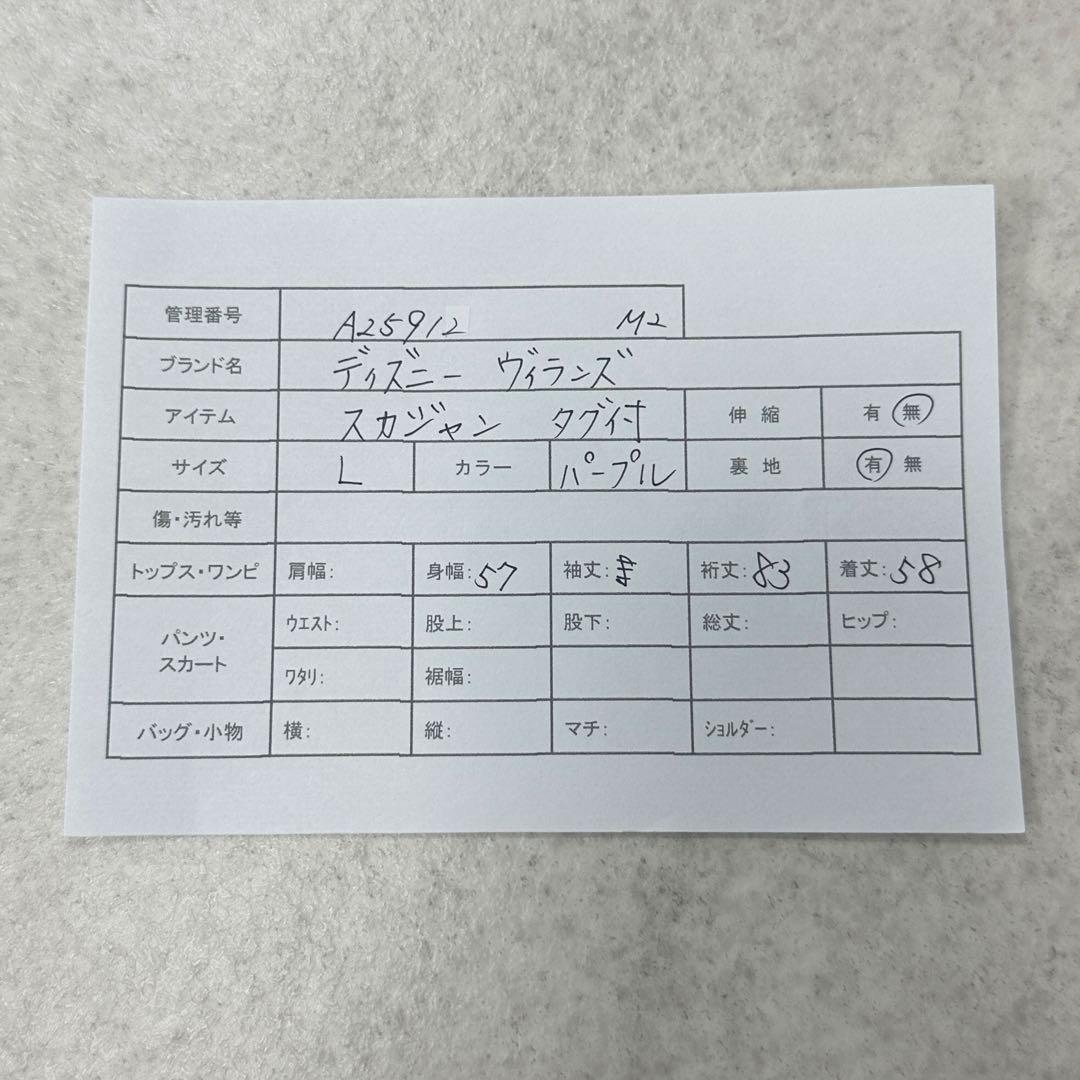 管理番号 A25912 M2
ブランド名 ディズニー ヴィランズ
アイテム スカジャン タグ付 伸縮 有 無
サイズ L カラー パープル 裏地 有 無
傷・汚れ等
トップス・ワンピ 肩幅: 身幅:57 袖丈: 裄丈:83 着丈:58
パンツ・スカート ウエスト: 股上: 股下: 総丈: ヒップ:
ワタリ: 裾幅:
バッグ・小物 横: 縦: マチ: ショルダー: